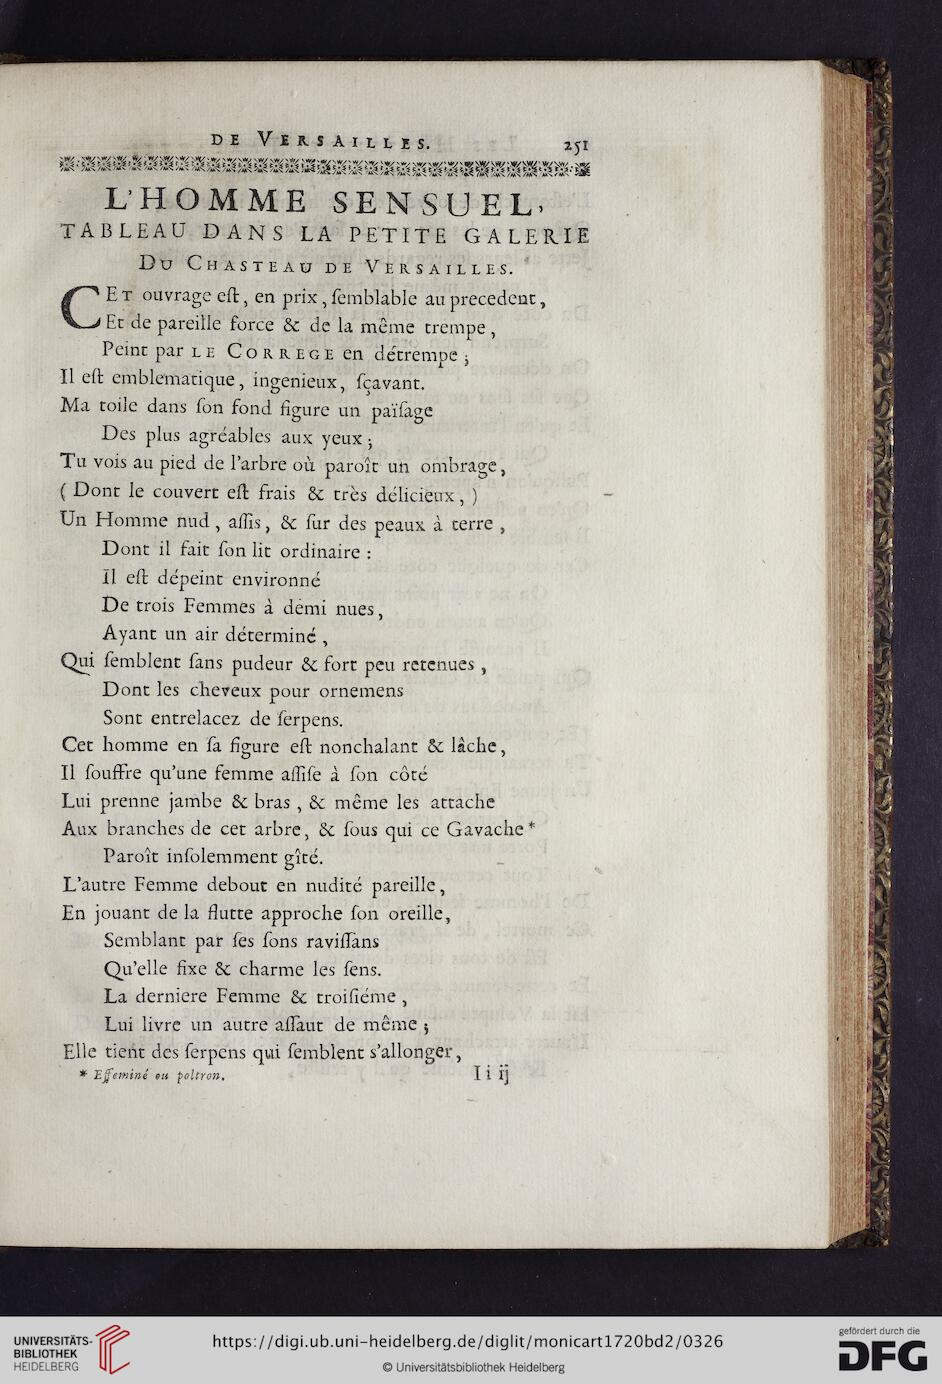 DE VERSAILLES. 251
L'HOMME SENSUEL,
TABLEAU DANS LA PETITE GALERIE
DU CHASTEAU DE VERSAILLES.
CET ouvrage eſt, en prix, ſemblable au precedent,
Et de pareille force & de la même trempe,
Peint par LE CORREGE en détrempe ;
Il eſt emblematique, ingenieux, ſçavant.
Ma toile dans ſon fond figure un païſage
Des plus agréables aux yeux ;
Tu vois au pied de l'arbre où paroît un ombrage,
( Dont le couvert eſt frais & très délicieux, )
Un Homme nud, aſſis, & ſur des peaux à terre,
Dont il fait ſon lit ordinaire :
Il eſt dépeint environné
De trois Femmes à demi nues,
Ayant un air déterminé,
Qui ſemblent ſans pudeur & fort peu retenues,
Dont les cheveux pour ornemens
Sont entrelacez de ſerpens.
Cet homme en ſa figure eſt nonchalant & lâche,
Il ſouffre qu'une femme aſſiſe à ſon côté
Lui prenne jambe & bras, & même les attache
Aux branches de cet arbre, & ſous qui ce Gavache *
Paroît inſolemment gîté.
L'autre Femme debout en nudité pareille,
En jouant de la flutte approche ſon oreille,
Semblant par ſes ſons raviſſans
Qu'elle fixe & charme les ſens.
La derniere Femme & troiſiéme,
Lui livre un autre aſſaut de même ;
Elle tient des ſerpens qui ſemblent s'allonger,
* Effeminé ou poltron. Ii ij
UNIVERSITÄTS-
BIBLIOTHEK
HEIDELBERG
https://digi.ub.uni-heidelberg.de/diglit/monicart1720bd2/0326
© Universitätsbibliothek Heidelberg
gefördert durch die
DFG